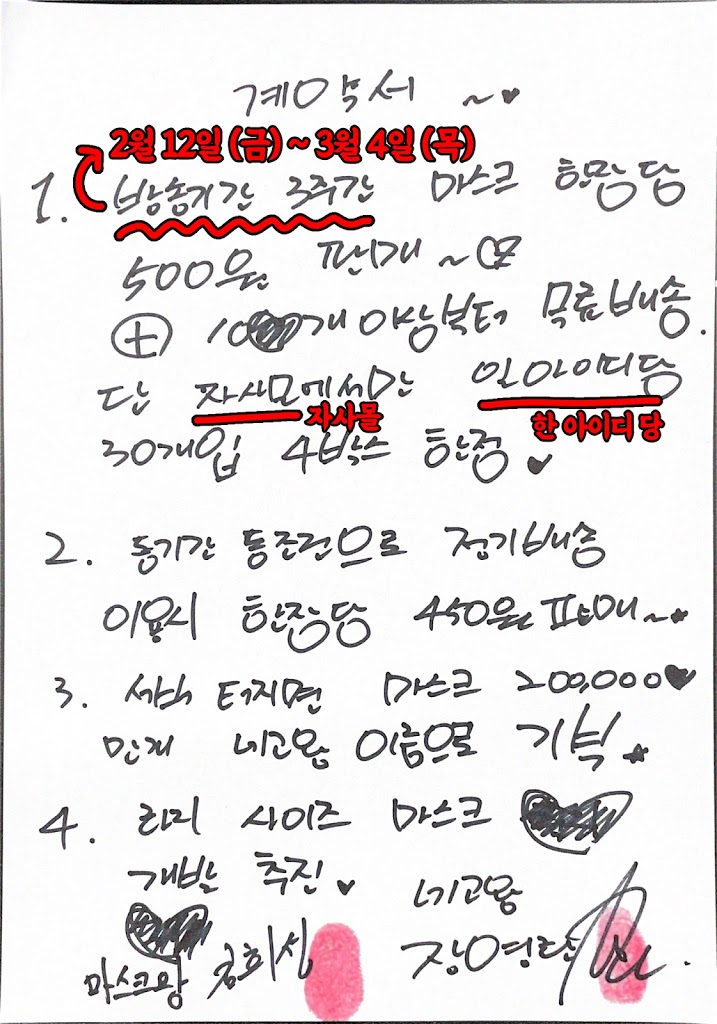 계약서 ~♥
2월 12일 (금) ~ 3월 4일 (목)
1. 방송기간 3주간 마스크 한장당
500원 판매 ~
⊕ 10개 이상부터 무료배송.
단 자사모에서만 일아이디당
자사몰 한 아이디 당
30개입 4박스 한정 ♥
2. 동기간 동조건으로 정기배송
이용시 한장당 450원 판매~★
3. 서버 터지면 마스크 200,000♥
만개 네고왕 이름으로 기부★
4. 라지 사이즈 마스크
개발 추진 ♥
네고왕
마스크왕 장영란